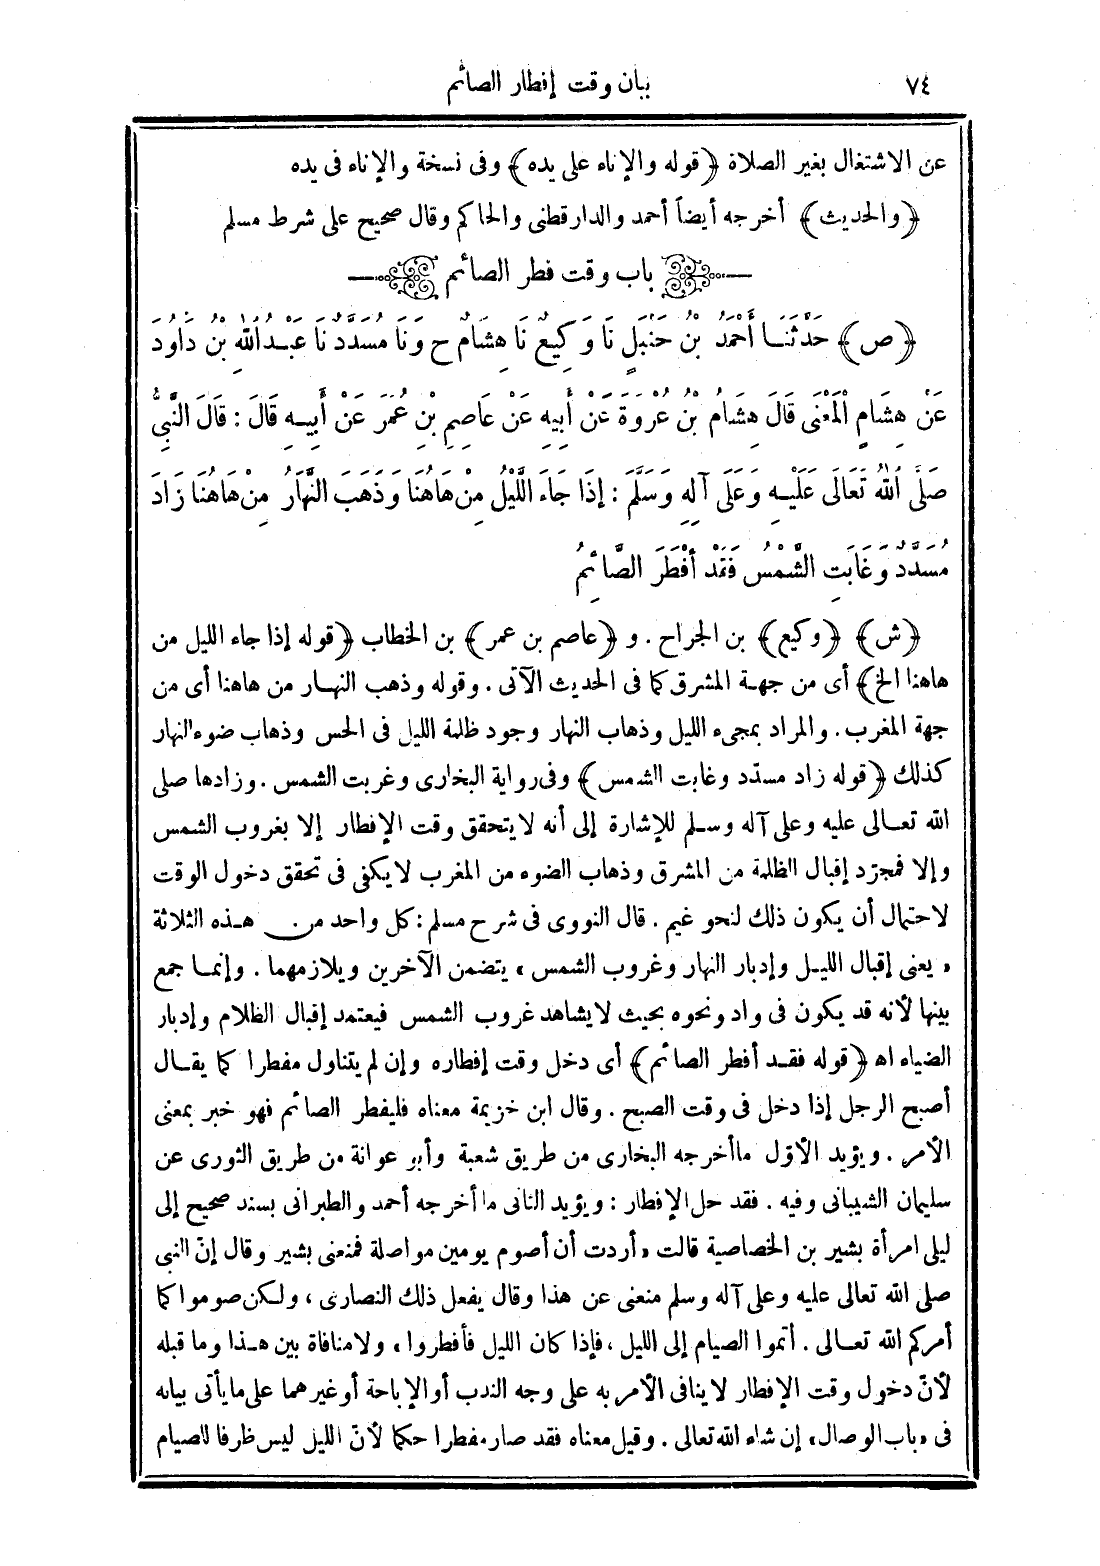 ٧٤ بيان وقت إفطار الصائم
عن الاشتغال بغير الصلاة ﴿قوله والإناء على يده﴾ وفى نسخة والإناء فى يده
﴿والحديث﴾ أخرجه أيضاً أحمد والدارقطنى والحاكم وقال صحيح على شرط مسلم
باب وقت فطر الصائم
﴿ص﴾ حَدَّثَنَا أَحْمَدُ بْنُ حَنْبَلٍ نَا وَكِيعٌ نَا هِشَامٌ ح وَنَا مُسَدَّدٌ نَا عَبْدُ اللهِ بْنُ دَاوُدَ
عَنْ هِشَامٍ الْمَعْنَى قَالَ هِشَامُ بْنُ عُرْوَةَ عَنْ أَبِيهِ عَنْ عَاصِمِ بْنِ عُمَرَ عَنْ أَبِيهِ قَالَ : قَالَ النَّبِىُّ
صَلَّى اللهُ تَعَالَى عَلَيْهِ وَعَلَى آلِهِ وَسَلَّمَ : إِذَا جَاءَ اللَّيْلُ مِنْ هَاهُنَا وَذَهَبَ النَّهَارُ مِنْ هَاهُنَا زَادَ
مُسَدَّدٌ وَغَابَتِ الشَّمْسُ فَقَدْ أَفْطَرَ الصَّائِمُ
﴿ش﴾ ﴿وكيع﴾ بن الجراح . و ﴿عاصم بن عمر﴾ بن الخطاب ﴿قوله إذا جاء الليل من
هاهنا الخ﴾ أى من جهة المشرق كما فى الحديث الآتى . وقوله وذهب النهار من هاهنا أى من
جهة المغرب . والمراد بمجىء الليل وذهاب النهار وجود ظلمة الليل فى الحس وذهاب ضوء النهار
كذلك ﴿قوله زاد مسدّد وغابت الشمس﴾ وفى رواية البخارى وغربت الشمس . وزادها صلى
الله تعالى عليه وعلى آله وسلم للإشارة إلى أنه لا يتحقق وقت الإفطار إلا بغروب الشمس
وإلا فمجرّد إقبال الظلمة من المشرق وذهاب الضوء من المغرب لا يكفى فى تحقق دخول الوقت
لاحتمال أن يكون ذلك لنحو غيم . قال النووى فى شرح مسلم : كل واحد من هذه الثلاثة
« يعنى إقبال الليل وإدبار النهار وغروب الشمس » يتضمن الآخرين ويلازمهما . وإنما جمع
بينها لأنه قد يكون فى واد ونحوه بحيث لا يشاهد غروب الشمس فيعتمد إقبال الظلام وإدبار
الضياء اه ﴿قوله فقد أفطر الصائم﴾ أى دخل وقت إفطاره وإن لم يتناول مفطرا كما يقال
أصبح الرجل إذا دخل فى وقت الصبح . وقال ابن خزيمة معناه فليفطر الصائم فهو خبر بمعنى
الأمر . ويؤيد الأوّل ما أخرجه البخارى من طريق شعبة وأبو عوانة من طريق الثورى عن
سليمان الشيبانى وفيه . فقد حل الإفطار : ويؤيد الثانى ما أخرجه أحمد والطبرانى بسند صحيح إلى
ليلى امرأة بشير بن الخصاصية قالت « أردت أن أصوم يومين مواصلة فمنعنى بشير وقال إنّ النبى
صلى الله تعالى عليه وعلى آله وسلم منعنى عن هذا وقال يفعل ذلك النصارى ، ولكن صوموا كما
أمركم الله تعالى . أتموا الصيام إلى الليل ، فإذا كان الليل فأفطروا » ولا منافاة بين هذا وما قبله
لأنّ دخول وقت الإفطار لا ينافى الأمر به على وجه الندب أو الإباحة أو غيرهما على ما يأتى بيانه
فى « باب الوصال » إن شاء الله تعالى . وقيل معناه فقد صار مفطرا حكما لأنّ الليل ليس ظرفا للصيام